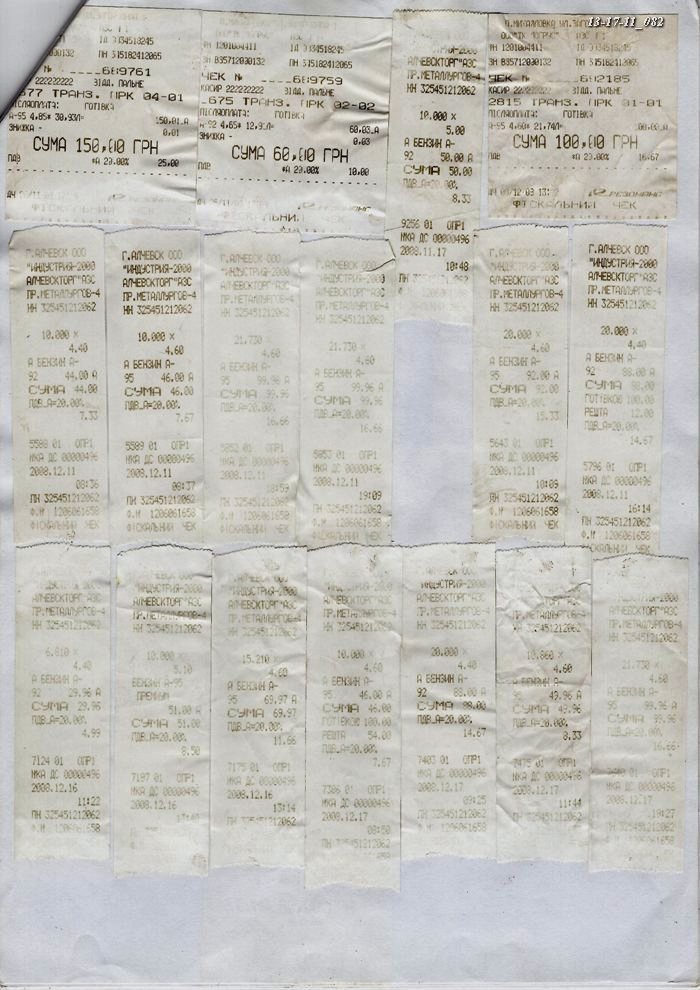 13-17-11_082
ІД 034518245
ЗН 1201004411
ЗН В35712030132
ПН 315182412065
689761
КАСИР 22222222 ВІДД. ПАЛЬНЕ
677 ТРАНЗ. ПРК 04-01
ПІСЛЯОПЛАТА: ГОТІВКА
А-95 4,85* 30,93Л= 150,01.А
ЗНИЖКА - 0,01
СУМА 150,00 ГРН
ПДВ *А 20.00% 25,00
ЗН 1201004411
ІД 034518245
ЗН В35712030132
ПН 315182412065
ЧЕК № ____689759
КАСИР 22222222 ВІДД. ПАЛЬНЕ
675 ТРАНЗ. ПРК 02-02
ПІСЛЯОПЛАТА: ГОТІВКА
60,03.А
ЗНИЖКА - 0,03
СУМА 60,00 ГРН
ПДВ *А 20.00% 10,00
ФІСКАЛЬНИЙ
АЛЧЕВСКТОРГ"АЗС
ПР.МЕТАЛЛУРГОВ-4
НН 325451212062
10.000 ×
5.00
А БЕНЗИН А-
92 50.00 А
СУМА 50.00
ПДВ_А=20.00%
8.33
9256 01 ОПР1
МКА ДС 00000496
2008.11.17
10:48
ПН 325451212062
П.МИХАЙЛОВКА
ЗН 1201004411
ІД 034518245
ЗН В35712030132
ПН 315182412065
ЧЕК № ____682185
КАСИР 22222222 ВІДД. ПАЛЬНЕ
2815 ТРАНЗ. ПРК 01-01
ПІСЛЯОПЛАТА: ГОТІВКА
А-95 4,60* 21,74Л=
СУМА 100,00 ГРН
ПДВ *А 20.00% 16,67
РЕЗОНАНС
ФІСКАЛЬНИЙ ЧЕК
Г.АЛЧЕВСК ООО
"ИНДУСТРИЯ-2000
АЛЧЕВСКТОРГ"АЗС
ПР.МЕТАЛЛУРГОВ-4
НН 325451212062
10.000 ×
4.40
А БЕНЗИН А-
92 44.00 А
СУМА 44.00
ПДВ_А=20.00%
7.33
5588 01 ОПР1
МКА ДС 00000496
2008.12.11
08:36
ПН 325451212062
Ф.№ 1206061658
ФІСКАЛЬНИЙ ЧЕК
Г.АЛЧЕВСК ООО
"ИНДУСТРИЯ-2000
АЛЧЕВСКТОРГ"АЗС
ПР.МЕТАЛЛУРГОВ-4
НН 325451212062
10.000 ×
4.60
А БЕНЗИН А-
95 46.00 А
СУМА 46.00
ПДВ_А=20.00%
7.67
5589 01 ОПР1
МКА ДС 00000496
2008.12.11
08:37
ПН 325451212062
Ф.№ 1206061658
ФІСКАЛЬНИЙ ЧЕК
Г.АЛЧЕВСК ООО
"ИНДУСТРИЯ-2000
АЛЧЕВСКТОРГ"АЗС
ПР.МЕТАЛЛУРГОВ-4
НН 325451212062
21.730 ×
4.60
А БЕНЗИН А-
95 99.96 А
СУМА 99.96
ПДВ_А=20.00%
16.66
5852 01 ОПР1
МКА ДС 00000496
2008.12.11
18:59
ПН 325451212062
Ф.№ 1206061658
ФІСКАЛЬНИЙ ЧЕК
Г.АЛЧЕВСК ООО
"ИНДУСТРИЯ-2000
АЛЧЕВСКТОРГ"АЗС
ПР.МЕТАЛЛУРГОВ-4
НН 325451212062
21.730 ×
4.60
А БЕНЗИН А-
95 99.96 А
СУМА 99.96
ПДВ_А=20.00%
16.66
5853 01 ОПР1
МКА ДС 00000496
2008.12.11
19:09
ПН 325451212062
Ф.№ 1206061658
ФІСКАЛЬНИЙ ЧЕК
Г.АЛЧЕВСК ООО
"ИНДУСТРИЯ-2000
АЛЧЕВСКТОРГ"АЗС
ПР.МЕТАЛЛУРГОВ-4
НН 325451212062
20.000 ×
4.60
А БЕНЗИН А-
95 92.00 А
СУМА 92.00
ПДВ_А=20.00%
15.33
5643 01 ОПР1
МКА ДС 00000496
2008.12.11
10:09
ПН 325451212062
Ф.№ 1206061658
ФІСКАЛЬНИЙ ЧЕК
Г.АЛЧЕВСК ООО
"ИНДУСТРИЯ-2000
АЛЧЕВСКТОРГ"АЗС
ПР.МЕТАЛЛУРГОВ-4
НН 325451212062
20.000 ×
4.40
А БЕНЗИН А-
92 88.00 А
СУМА 88.00
ГОТІВКОЮ 100.00
РЕШТА 12.00
ПДВ_А=20.00%
14.67
5796 01 ОПР1
МКА ДС 00000496
2008.12.11
16:14
ПН 325451212062
Ф.№ 1206061658
ФІСКАЛЬНИЙ ЧЕК
АЛЧЕВСКТОРГ"АЗС
ПР.МЕТАЛЛУРГОВ-4
НН 325451212062
6.810 ×
4.40
А БЕНЗИН А-
92 29.96 А
СУМА 29.96
ПДВ_А=20.00%
4.99
7124 01 ОПР1
МКА ДС 00000496
2008.12.16
11:22
ПН 325451212062
Ф.№ 1206061658
"ИНДУСТРИЯ-2000
АЛЧЕВСКТОРГ"АЗС
ПР.МЕТАЛЛУРГОВ-4
НН 325451212062
10.000 ×
5.10
БЕНЗИН А-95
ПРЕМИУМ
51.00 А
СУМА 51.00
ПДВ_А=20.00%
8.50
7197 01 ОПР1
МКА ДС 00000496
2008.12.16
ПН 325451212062
"ИНДУСТРИЯ-2000
АЛЧЕВСКТОРГ"АЗС
ПР.МЕТАЛЛУРГОВ-4
НН 325451212062
15.210 ×
4.60
А БЕНЗИН А-
95 69.97 А
СУМА 69.97
ПДВ_А=20.00%
11.66
7175 01 ОПР1
МКА ДС 00000496
2008.12.16
13:14
ПН 325451212062
Ф.№ 1206061658
"ИНДУСТРИЯ-2000
АЛЧЕВСКТОРГ"АЗС
ПР.МЕТАЛЛУРГОВ-4
НН 325451212062
10.000 ×
4.60
А БЕНЗИН А-
95 46.00 А
СУМА 46.00
ГОТІВКОЮ 100.00
РЕШТА 54.00
ПДВ_А=20.00%
7.67
7386 01 ОПР1
МКА ДС 00000496
2008.12.17
08:50
"ИНДУСТРИЯ-2000
АЛЧЕВСКТОРГ"АЗС
ПР.МЕТАЛЛУРГОВ-4
НН 325451212062
20.000 ×
4.40
А БЕНЗИН А-
92 88.00 А
СУМА 88.00
ПДВ_А=20.00%
14.67
7403 01 ОПР1
МКА ДС 00000496
2008.12.17
09:25
ПН 325451212062
Ф.№ 1206061658
АЛЧЕВСКТОРГ"АЗС
ПР.МЕТАЛЛУРГОВ-4
НН 325451212062
10.860 ×
4.60
А БЕНЗИН А-
95 49.96 А
СУМА 49.96
ПДВ_А=20.00%
8.33
7475 01 ОПР1
МКА ДС 00000496
2008.12.17
11:44
ПН 325451212062
Ф.№ 1206061658
"ИНДУСТРИЯ-2000
АЛЧЕВСКТОРГ"АЗС
ПР.МЕТАЛЛУРГОВ-4
НН 325451212062
21.730 ×
4.60
А БЕНЗИН А-
95 99.96 А
СУМА 99.96
ПДВ_А=20.00%
16.66
МКА ДС 00000496
2008.12.17
19:27
ПН 325451212062
Ф.№ 1206061658